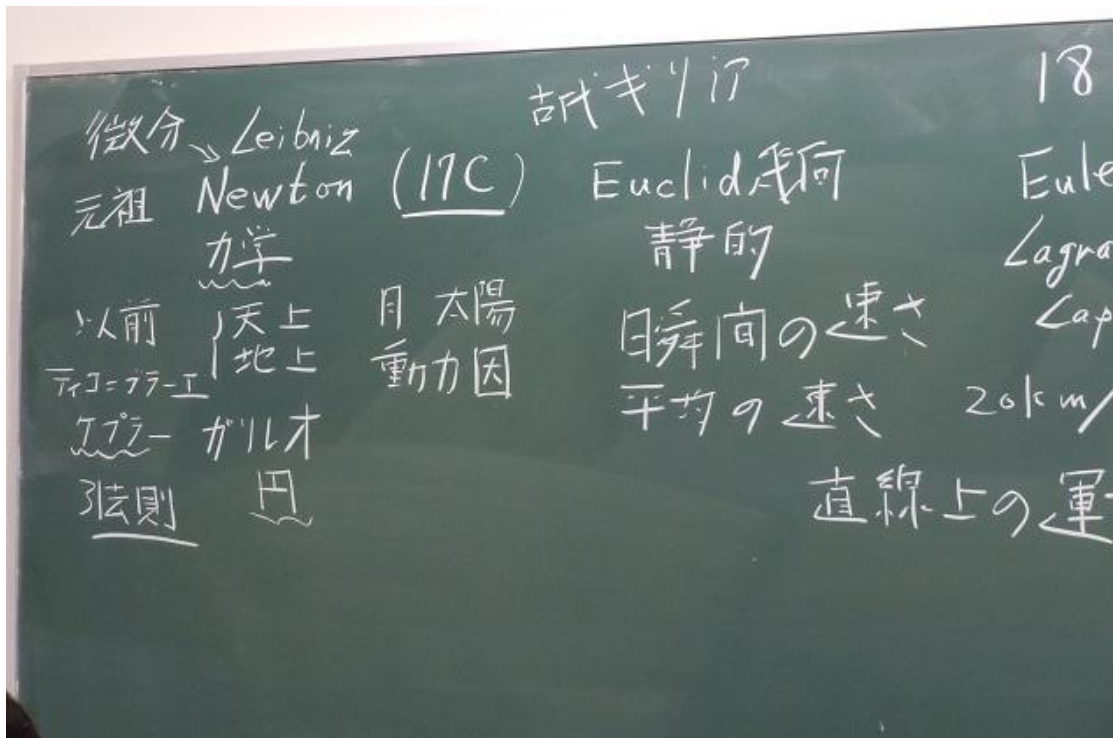 微分 Leibniz
元祖 Newton (17C)
力学
以前 天上 月 太陽
地上 動力因
ティコ=ブラーエ
ケプラー ガリレオ
3法則 円
古代ギリシア
Euclid幾何
静的
瞬間の速さ
平均の速さ 20km/
直線上の運
18
Eule
Lagra
Lap